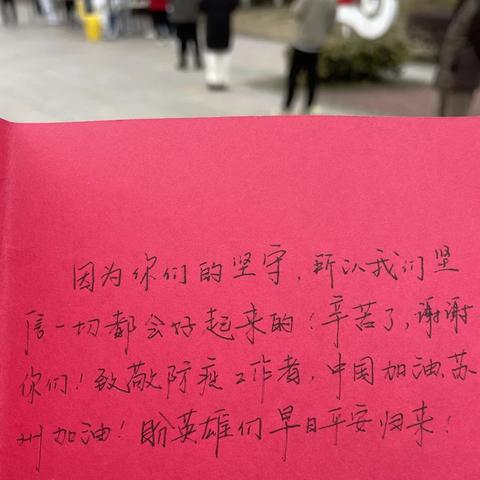 因为你们的坚守，所以我们坚
信一切都会好起来的！辛苦了，谢谢
你们！致敬防疫工作者，中国加油、苏
州加油！盼英雄们早日平安归来！